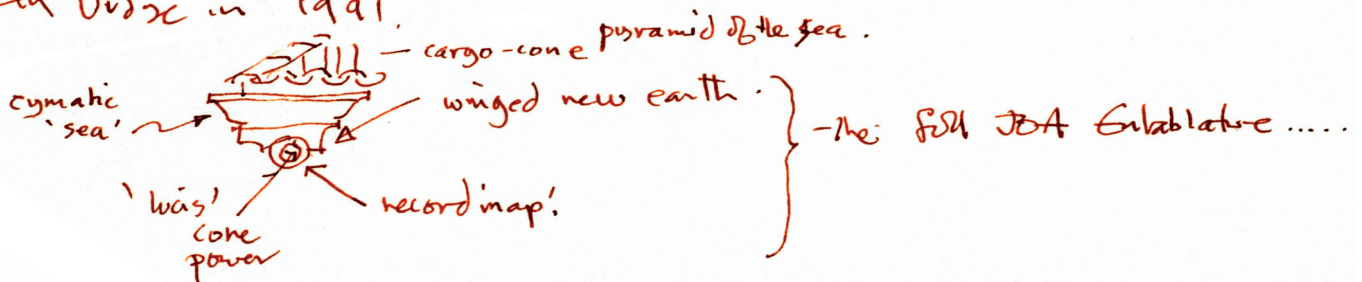 in 1991.
cargo-cone pyramid of the sea.
cymatic
'sea'
winged new earth.
-the full JOA Entablature.....
record map!
core
power